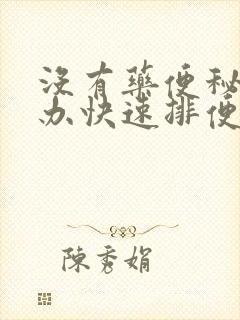 沒有藥便秘
办快速排便
陳秀娟